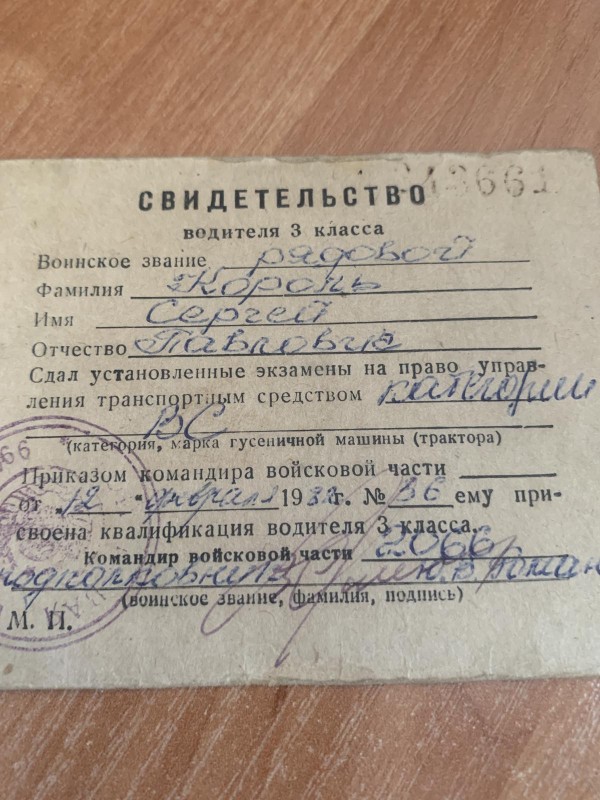 СВИДЕТЕЛЬСТВО
водителя 3 класса
Воинское звание рядовой
Фамилия Король
Имя Сергей
Отчество Павлович
Сдал установленные экзамены на право управ-
ления транспортным средством категории
ВС
(категория, марка гусеничной машины (трактора)
Приказом командира войсковой части
от „12 " февраля 198 г. № 36 ему при-
своена квалификация водителя 3 класса.
Командир войсковой части 2066
подполковник
(воинское звание, фамилия, подпись)
М. П.